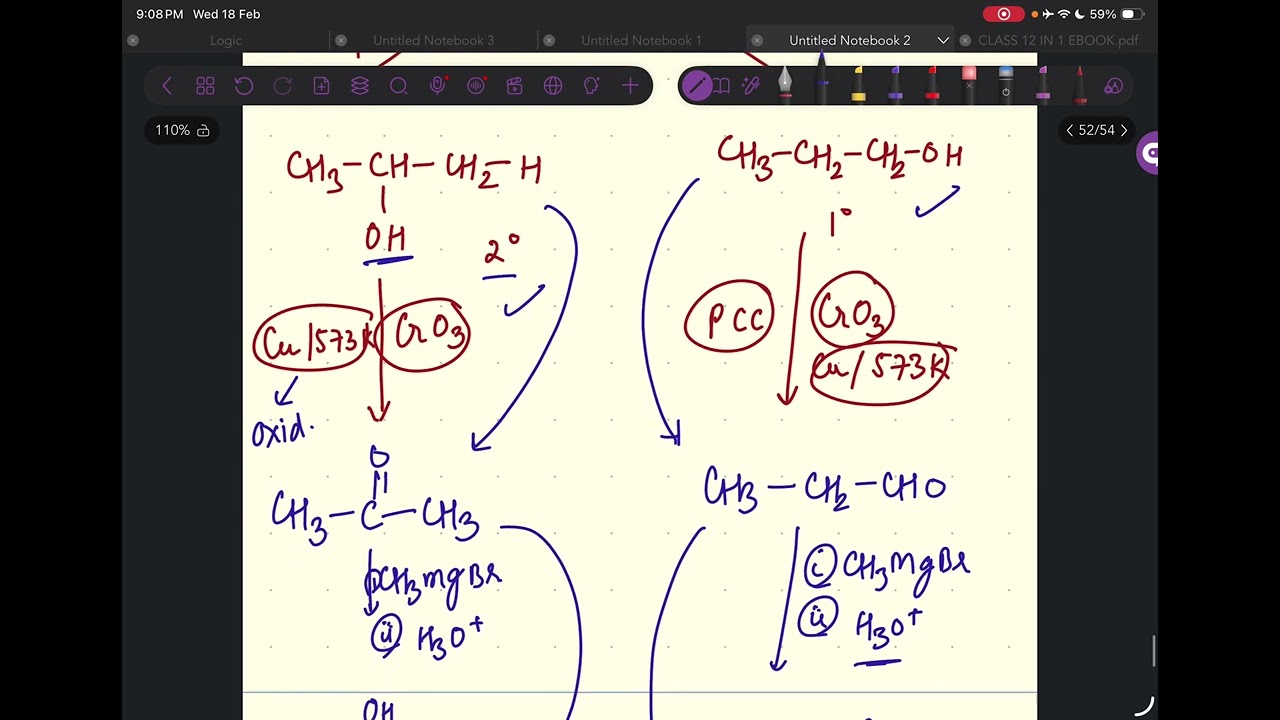 9:08 PM Wed 18 Feb
59%
Logic
Untitled Notebook 3
Untitled Notebook 1
Untitled Notebook 2
CLASS 12 IN 1 EBOOK.pdf
110%
52/54
CH3-CH-CH2-H
OH
2°
Cu/573K
CrO3
oxid.
O
CH3-C-CH3
CH3MgBr
(ii) H3O+
OH
CH3-CH2-CH2-OH
1°
PCC
CrO3
Cu/573K
CH3-CH2-CHO
(i) CH3MgBr
(ii) H3O+